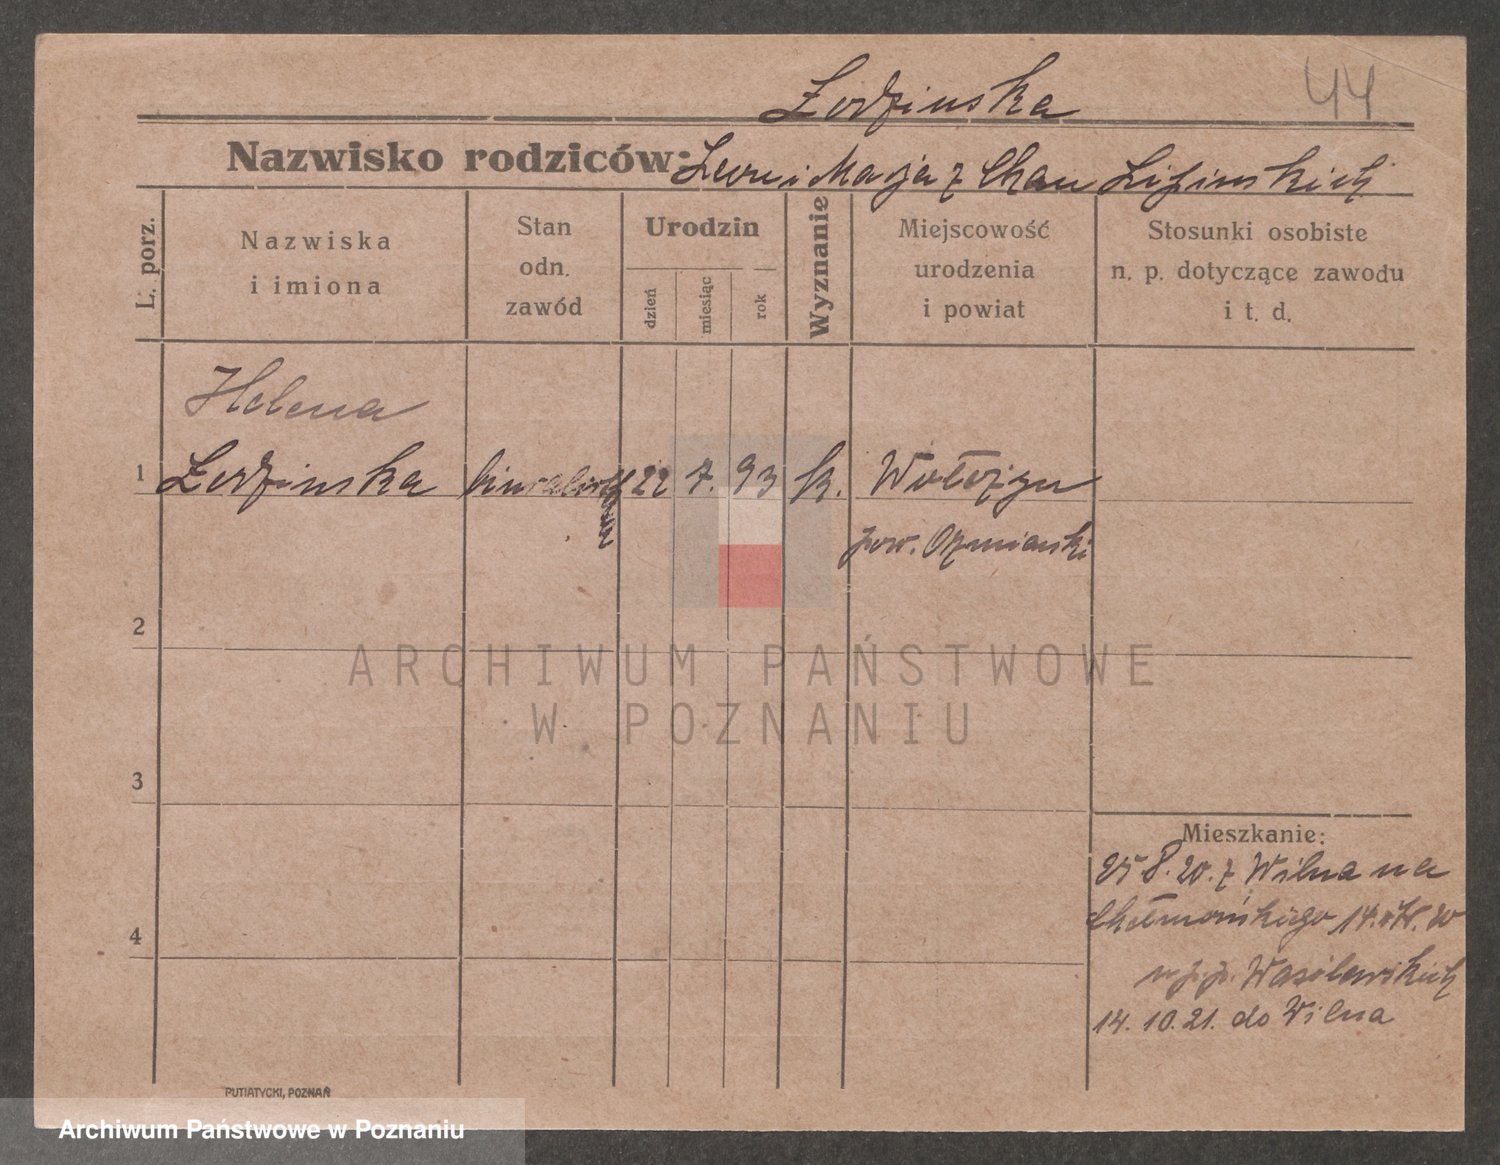 44
Łodzinska
Nazwisko rodziców: Leon i Marja z Chau Lipinskich
L. porz.
Nazwiska
i imiona
Stan
odn.
zawód
Urodzin
dzień
miesiąc
rok
Wyznanie
Miejscowość
urodzenia
i powiat
Stosunki osobiste
n. p. dotyczące zawodu
i t. d.
Helena
1 Łodzinska 22 7. 93 k. Wołożyn
pow. Oszmianski
2
ARCHIWUM PAŃSTWOWE
W POZNANIU
3
Mieszkanie:
25.8.20. z Wilna na
Chełmońskiego 14. 20
4
w p.p. Wasilewskich
14. 10. 21. do Wilna
PUTIATYCKI, POZNAŃ
Archiwum Państwowe w Poznaniu